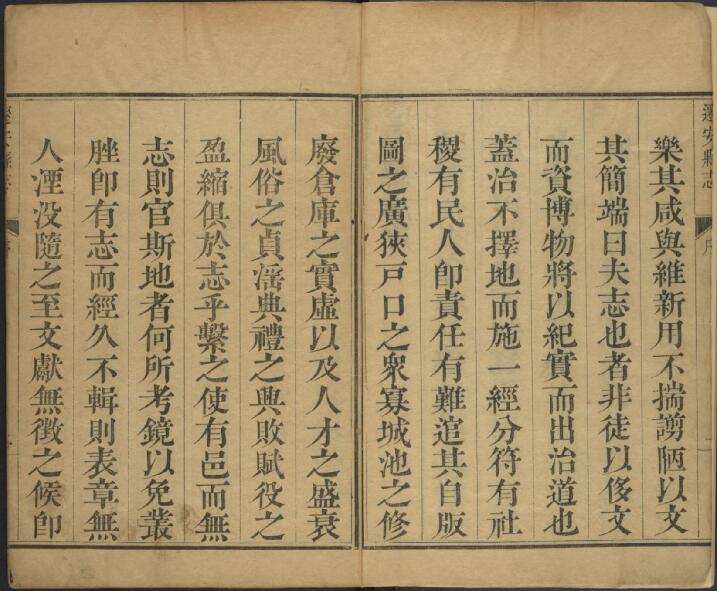 遷安縣志
樂其咸與維新用不揣謭陋以文
其簡端曰夫志也者非徒以侈文
而資博物將以紀實而出治道也
蓋治不擇地而施一經分符有社
稷有民人卽責任有難逭其自版
圖之廣狹戸口之衆寡城池之修
廢倉庫之實虛以及人才之盛衰
風俗之貞滛典禮之興敗賦役之
盈縮俱於志乎繫之使有邑而無
志則官斯地者何所考鏡以免叢
脞卽有志而經久不輯則表章無
人湮没隨之至文獻無徵之候卽
遷安縣志